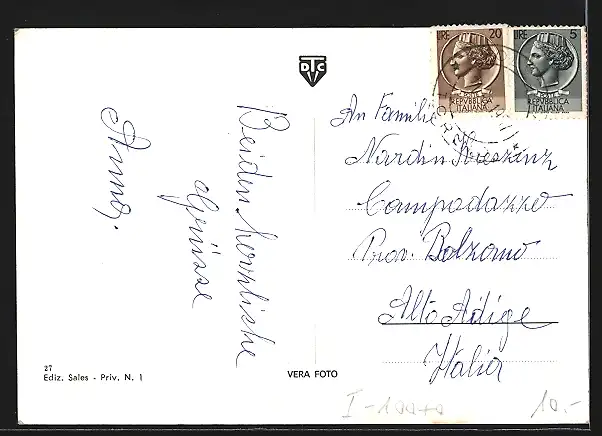 DTC
LIRE 20
POSTE
REPVBBLICA
ITALIANA
LIRE 5
POSTE
REPVBBLICA
ITALIANA
An Familie
Nardin
Campodazzo
Prov. Bolzano
Alto Adige
Italia
Herzliche
Grüsse
Anna.
27
Ediz. Sales - Priv. N. 1
VERA FOTO
10.-